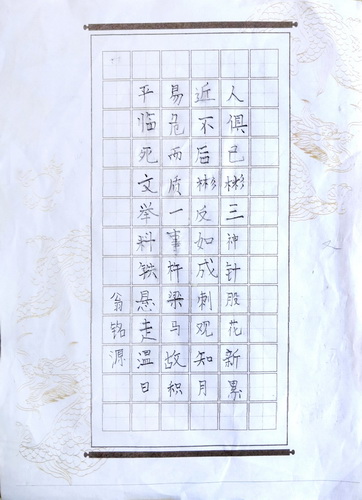 平易近人
临危不惧
死而后已
文质彬彬
举一反三
料事如神
铁杵成针
悬梁刺股
走马观花
温故知新
日积月累
翁铭源